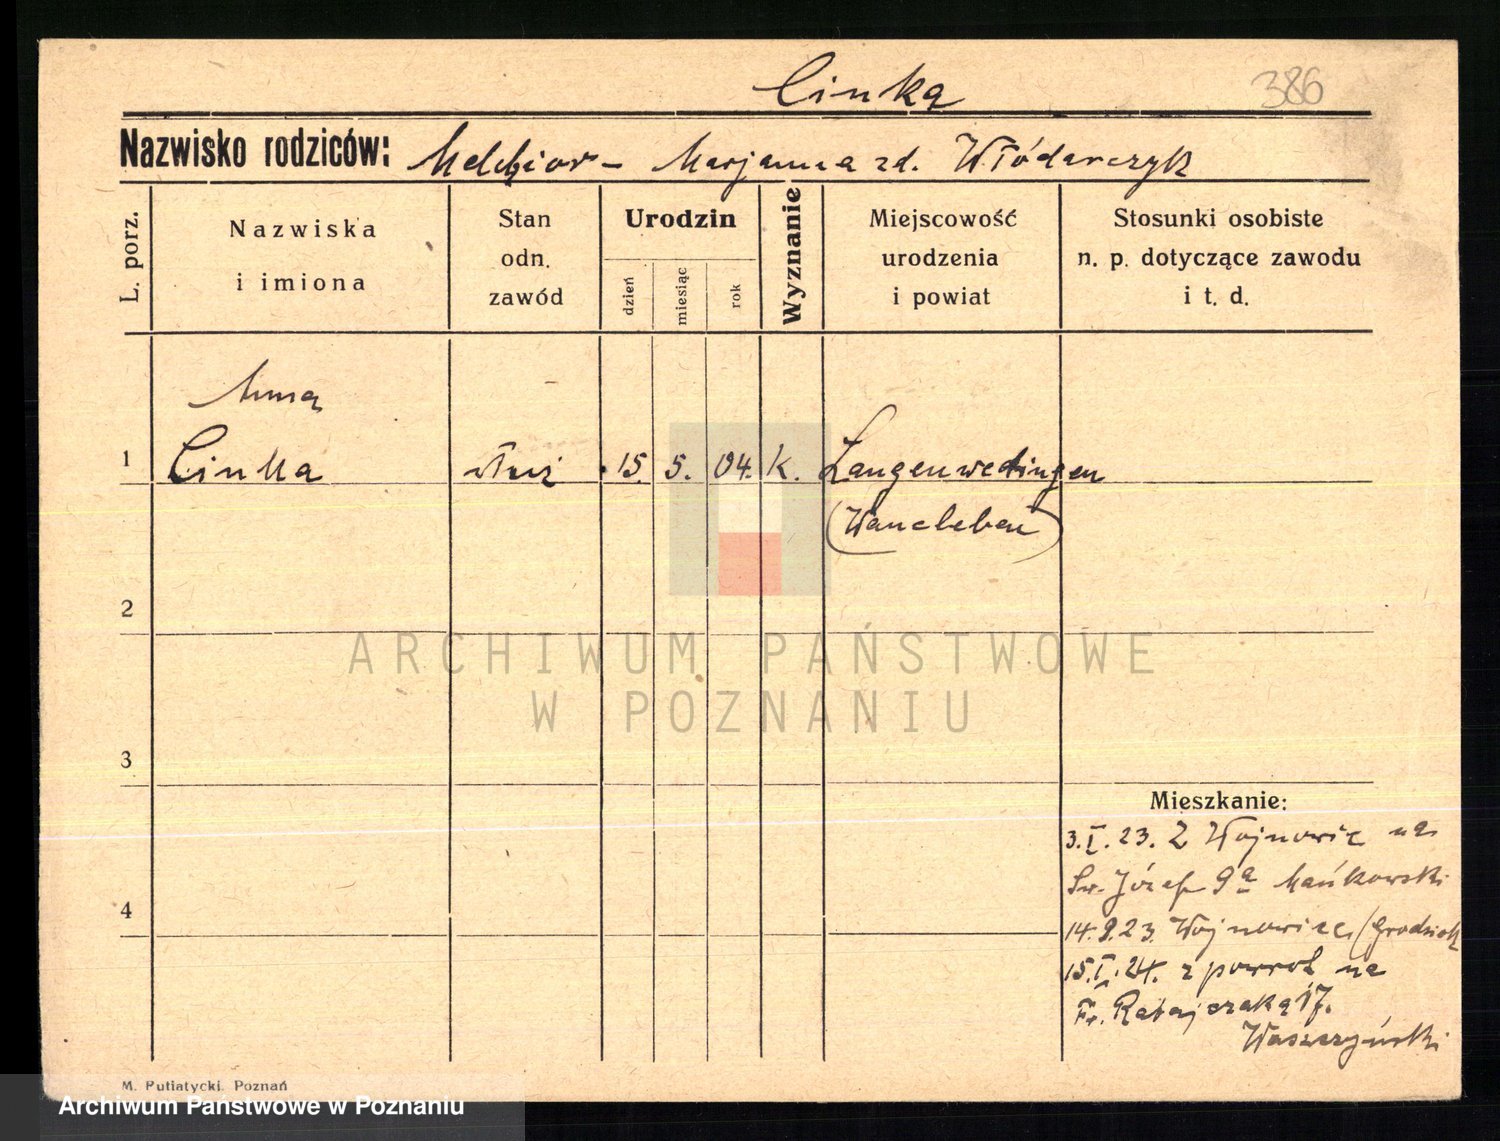 Cinka
386
Nazwisko rodziców: Melchior – Marjanna zd. Włódarczyk
L. porz.
Nazwiska
i imiona
Stan
odn.
zawód
Urodzin
dzień
miesiąc
rok
Wyznanie
Miejscowość
urodzenia
i powiat
Stosunki osobiste
n. p. dotyczące zawodu
i t. d.
Anna
1 Cinka służ 15. 5. 04. K. Langenwedingen
(Wancleben)
2
3
4
Mieszkanie:
3.I.23. Z Wojnowic na
Św. Józef 9a Mańkowski
14.9.23. Wojnowice (Grodzisk
15.I.24. z powrot na
Fr. Ratajczaka 17.
Waszczyński
M. Putiatycki. Poznań
ARCHIWUM PAŃSTWOWE
W POZNANIU
Archiwum Państwowe w Poznaniu